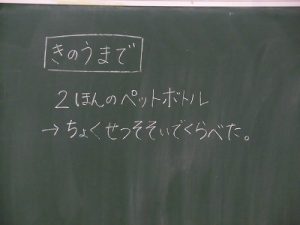 きのうまで
2ほんのペットボトル
→ちょくせつそそいでくらべた。